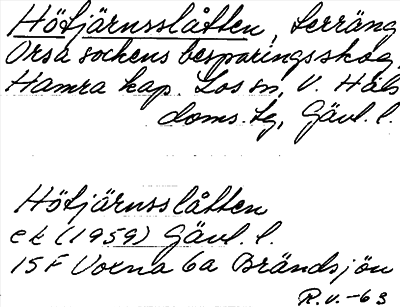 Hötjärnsslåtten, terräng
Orsa sockens besparingsskog,
Hamra kap. Los sn, V. Häls
doms. tg, Gävl. l.
Hötjärnsslåtten
ek (1959) Gävl. l.
15F Voxna 6a Brändsjön
R.V.-63